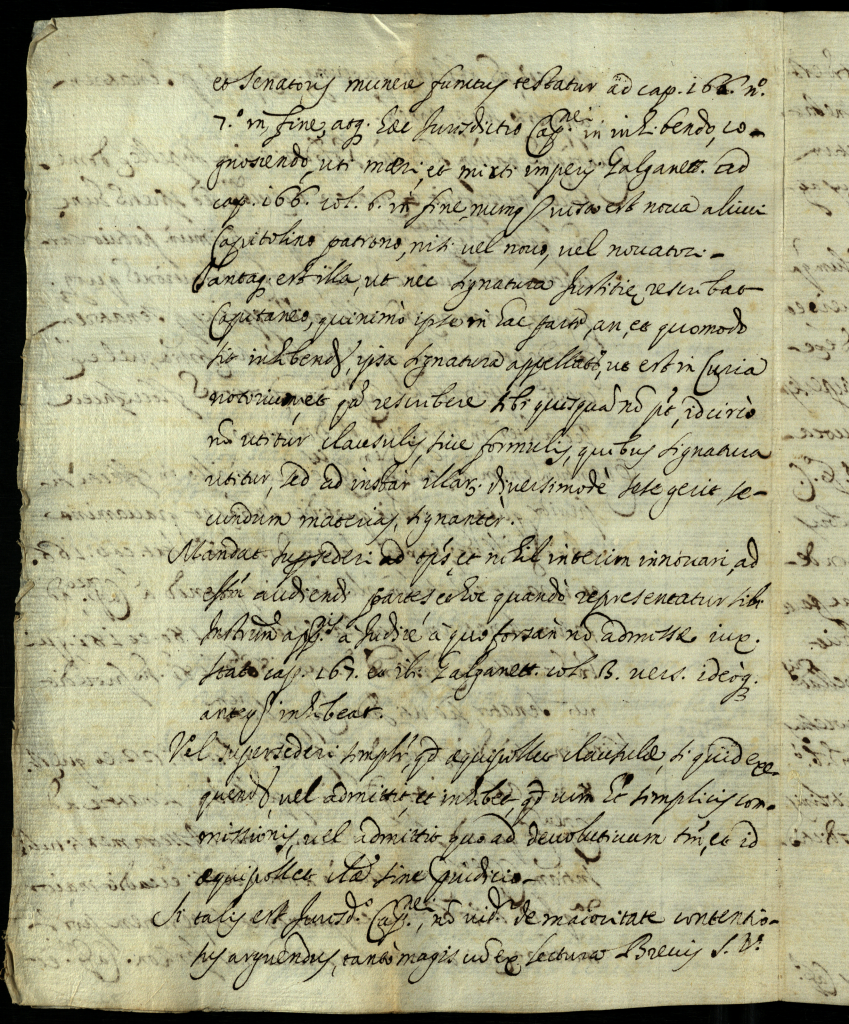 et Senatorijs munere functus testatur ad cap. 166. nº.
7.º in fine, atq. hæc Jurisdictio Cap.nei in inhibendo, co-
gnoscendo, uti meri, et mixti imperij Galganett. ad
cap. 166. col. 6. in fine, est nova alicui
Capitolino patrono, nisi vel novo, vel novatori-
Tantaq. est illa, ut nec signatura Justitiæ rescribat
Capitaneo, quinimò ipse in hac parte, an, et quomodo
sit inhibend., ipsa signatura appellatr, ut est in Curia
notorium, et qa rescribere sibi quisquā nō pt, idcircò
nō utitur clausulis, sive formulis, quibus signatura
utitur, sed ad instar illar. diversimodè sese gerit, se-
cundum materias, signanter.
Mandat supsederi ad et nihil interim innovari, ad
audiendi partes et hoc quandò representatur sibi
Instrum app.nis à Judice à quo forsan nō admissæ iux.
stat. cap. 167. et ibi Galganett. col. B. vers. ideòq.
inhibeat.
Vel supersederi simplr, qd æquipollet clausulæ, si quid exe-
quend, vel admittit, et inhibet, qd cum sit simplicis com-
missionis, vel admittit quo ad devolutivum tm, et id
æquipollet clæ sine pudicio-
Si talis est Jurisd.º Cap.nei, nō vid.r de maioritate contentio-
sus arguendus, tantò magis ex lectura Brevis S. V.